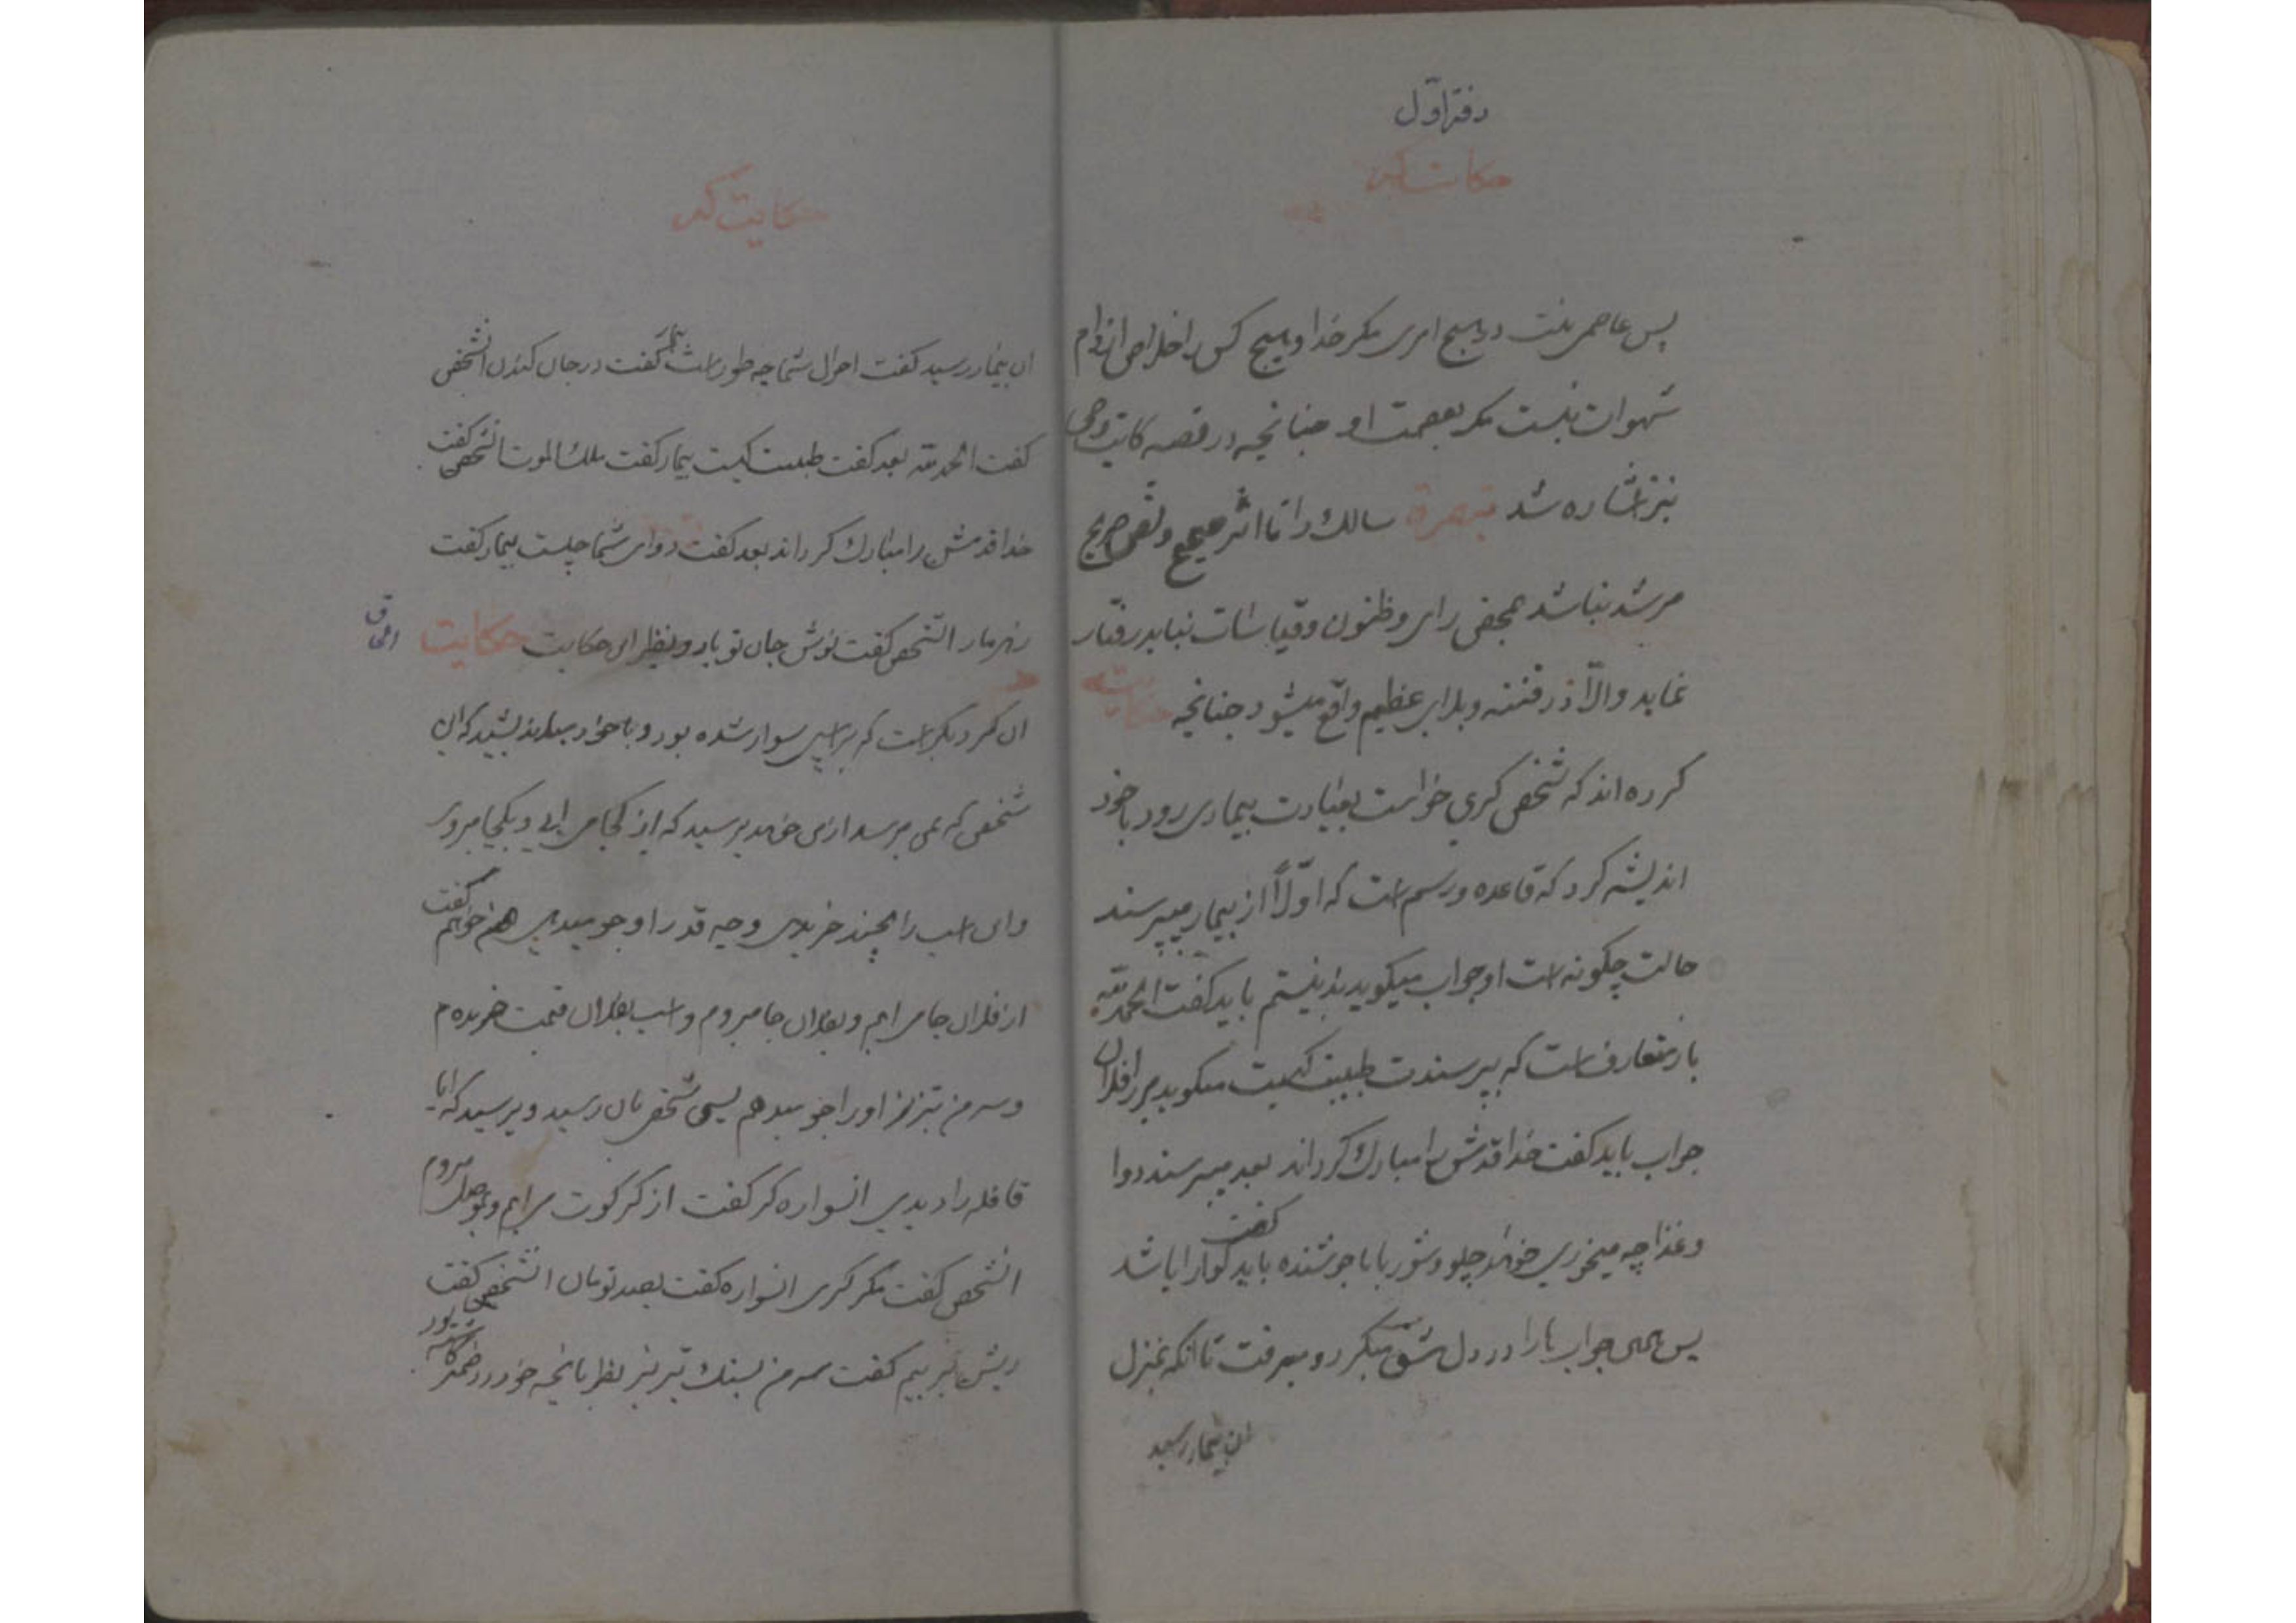 دفتر اوّل
حکایت کر
پس عاصمی نیست در هیچ امری مگر خدا و هیچ کس را خلاصی از دام
شهوات نیست مگر بعصمت او چنانچه در قصه کاتب وحی
نیز اشاره شد تبصرة سالک را تا اثر صحیح و نص صریح
مرشد نباشد بمحض رای و ظنون و قیاسات نباید رفتار
نماید والّا در فتنه و بلای عظیم واقع میشود چنانچه حکایت
کرده اند که شخص کری خواست بعیادت بیماری رود با خود
اندیشه کرد که قاعده و رسم است که اوّلاً از بیمار میپرسند
حالت چگونه است او جواب میگوید بد نیستم باید گفت الحمدلله
باز متعارف است که بپرسندت طبیبت کیست میگوید میرزا فلان
جواب باید گفت خدا قدمش را مبارک گرداند بعد میپرسند دوا
و غذا چه میخوری خواهد چلو و شوربا یا جوشنده باید گفت گوارا باشد
پس همی جواب ها را در دل مشق میکرد و میرفت تا انکه بمنزل
ان بیمار رسید
حکایت کر
ان بیمار رسید گفت احوال شما چه طور است بیمار گفت در جان کندن انشخص
گفت الحمدلله بعد گفت طبیبت کیست بیمار گفت ملک الموت انشخص گفت
خدا قدمش را مبارک گرداند بعد گفت دوای شما چیست بیمار گفت
زهرمار انشخص گفت نوش جان تو باد و نظیر این حکایت حکایت
ان کر دیگر است که بر اسبی سوار شده بود و با خود میاندیشید که این
شخصی که بمی میرسد از من خواهد پرسید که از کجا می ایی و بکجا میروی
و این اسب را بچند خریدی و چه قدر او را جو میدهی من خواهم گفت
از فلان جا می ایم و بفلان جا میروم و اسب بفلان قیمت خریده ام
و سه من تبریز او را جو میدهم پس شخص بان رسید و پرسید که ایا
قافله را دیدی انسواره کر گفت از کرکوت می ایم و بموصل میروم
انشخص گفت مگر کری انسواره گفت بصد تومان انشخص گفت
ریش ببریم گفت سه من بسنک تبریز نظر بانچه خود در ضمیر